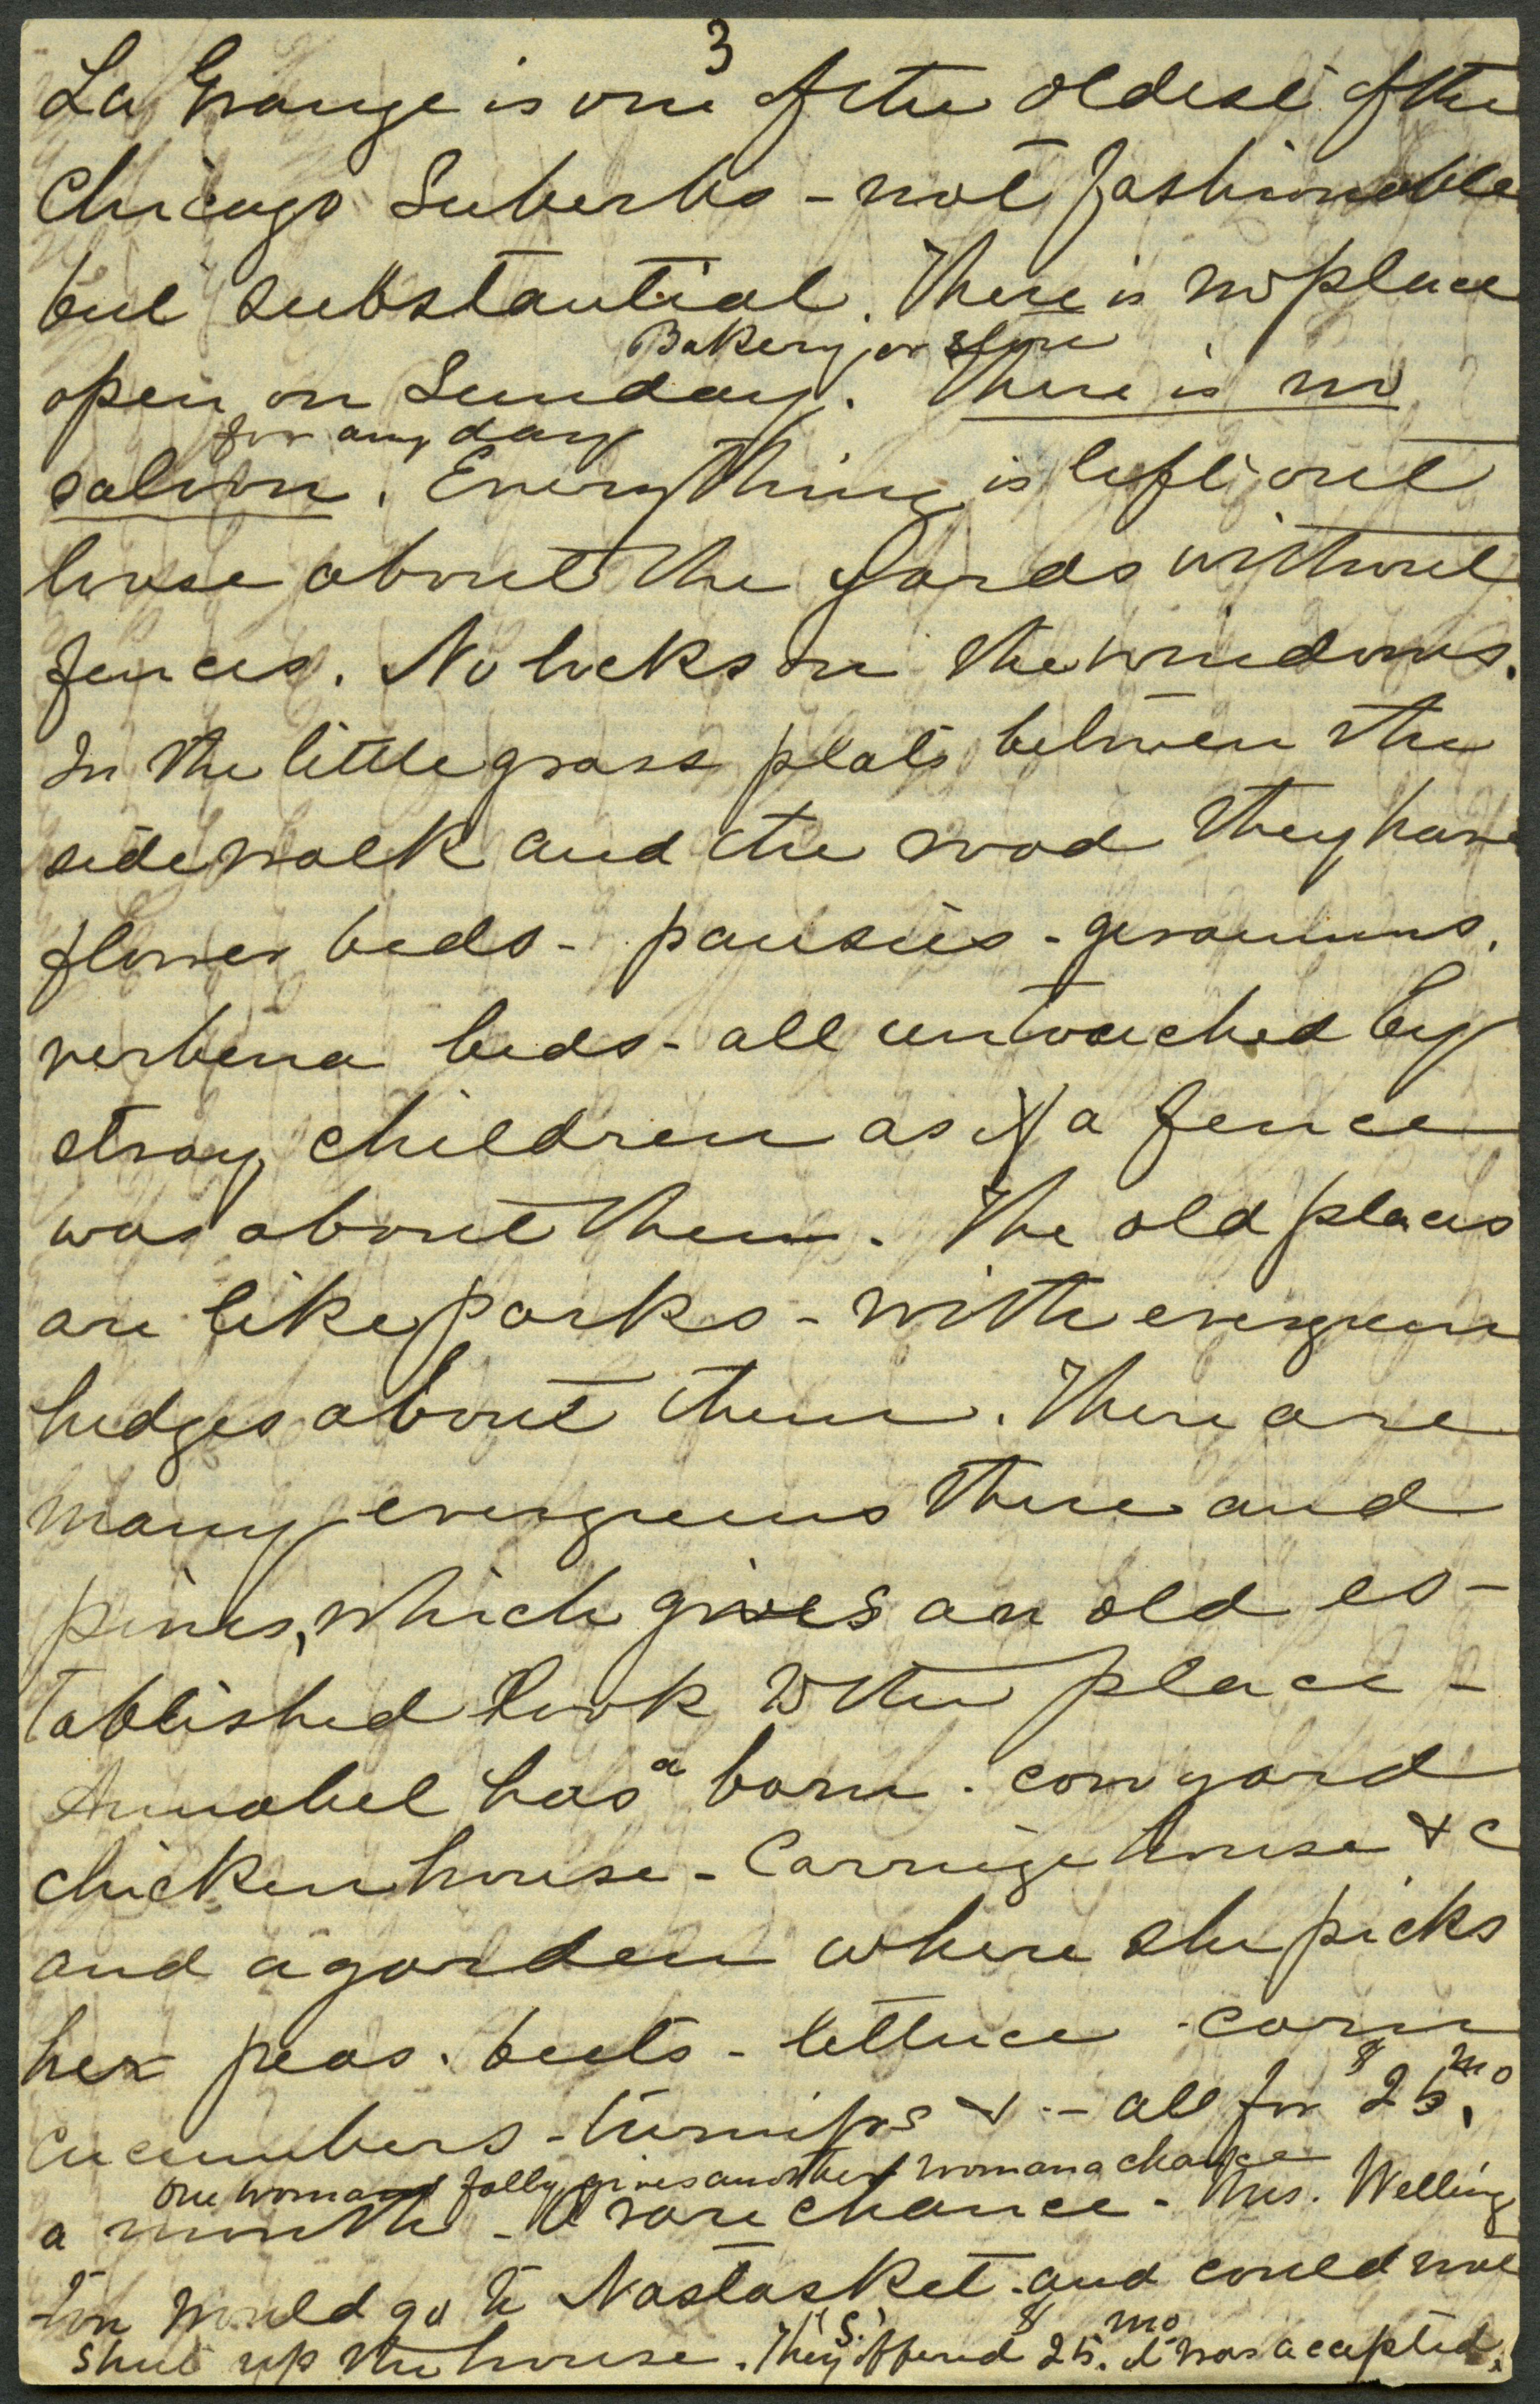 3
La Grange is one of the oldest of the
Chicago Suburbs - not fashionable
but substantial. There is no place
Bakery, or store
open on Sunday. There is no
for any day
saloon. Everything is left out
loose about the yards without
fences. No locks on the windows.
In the little grass plats between the
sidewalk and the road they have
flower beds - pansies - geraniums.
verbena beds - all untouched by
stray children as if a fence
was about them. The old places
are like parks - with evergreen
hedges about them. There are
many evergreens there and
pines, which gives an old es-
tablished look to the place -
Annabel has a barn - cow yard
chicken house - Carriage house & c
and a garden where she picks
her peas. beets - lettuce - corn
cucumbers - turnips & - - all for $25. mo
One womans folly gives another woman a chance
a month - A rare chance - Mrs. Welling
-ton would go to Nastasket - and could not
shut up the house. They offered $25. mo it was accepted.